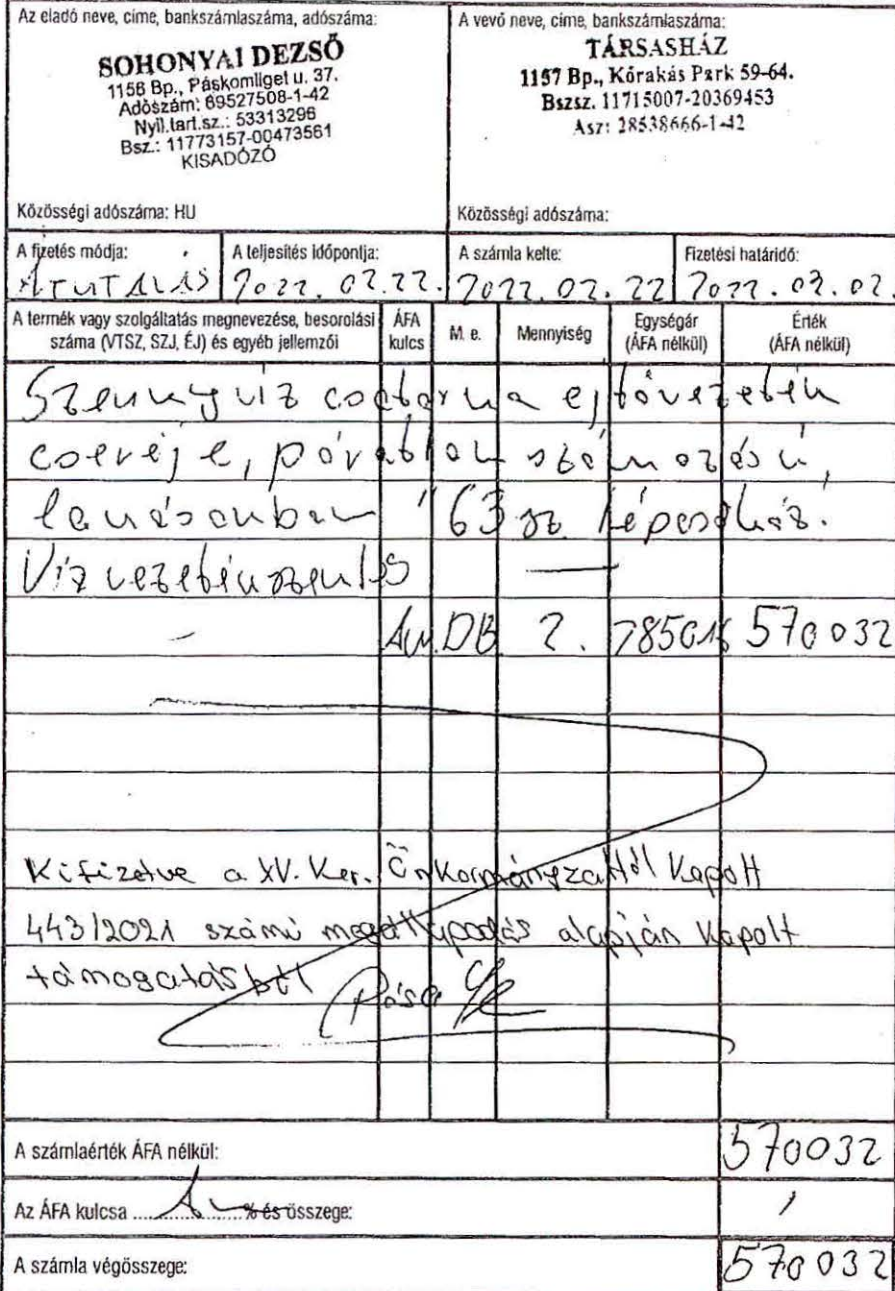 Az eladó neve, címe, bankszámlaszáma, adószáma:
SOHONYAI DEZSŐ
1156 Bp., Páskomliget u. 37.
Adószám: 69527508-1-42
Nyil.tart.sz.: 53313296
Bsz.: 11773157-00473561
KISADÓZÓ
Közösségi adószáma: HU
A vevő neve, címe, bankszámlaszáma:
TÁRSASHÁZ
1157 Bp., Kőrakás Park 59-64.
Bszsz. 11715007-20369453
Asz: 28538666-1-42
Közösségi adószáma:
A fizetés módja:
ÁTUTALÁS
A teljesítés időpontja:
2022. 02. 22.
A számla kelte:
2022. 02. 22
Fizetési határidő:
2022. 03. 02.
A termék vagy szolgáltatás megnevezése, besorolási száma (VTSZ, SZJ, ÉJ) és egyéb jellemzői
ÁFA kulcs
M. e.
Mennyiség
Egységár (ÁFA nélkül)
Érték (ÁFA nélkül)
Szennyvíz csatorna ejtővezeték
cseréje, páratlan számozású
lakásokban 63 sz lépcsőház.
Vízvezetékszerelés
DB 2. 285016 570032
Kifizetve a XV. Ker. Önkormányzattól kapott
443/2021 számú megállapodás alapján kapott
támogatásból
A számlaérték ÁFA nélkül: 570032
Az ÁFA kulcsa % és összege:
A számla végösszege: 570032